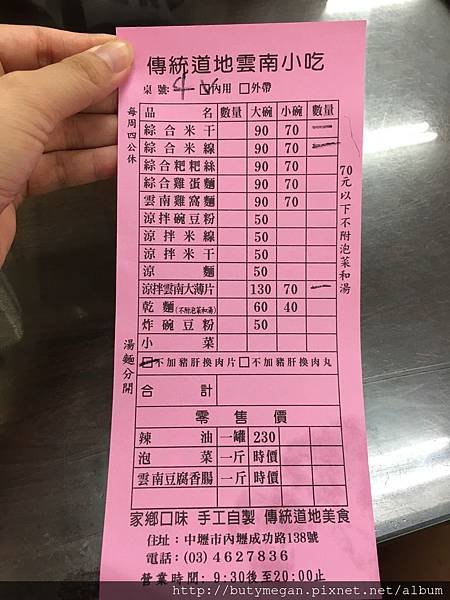 傳統道地雲南小吃
桌號: 4 內用 外帶
每周四公休
品名 數量 大碗 小碗 數量
綜合米干 90 70 一
綜合米線 90 70 一
綜合粑粑絲 90 70
綜合雞蛋麵 90 70
雲南雞窩麵 90 70
涼拌碗豆粉 50
涼拌米線 50
涼拌米干 50
涼麵 50
涼拌雲南大薄片 130 70 一
乾麵(不附泡菜和湯) 60 40
炸碗豆粉 50
小菜
70元以下不附泡菜和湯
湯麵分開
不加豬肝換肉片 不加豬肝換肉丸
合計
零售價
辣油 一罐 230
泡菜 一斤 時價
雲南豆腐香腸 一斤 時價
家鄉口味 手工自製 傳統道地美食
住址: 中壢市內壢成功路138號
電話: (03) 4627836
營業時間: 9:30後至20:00止
http://butymegan.pixnet.net/album